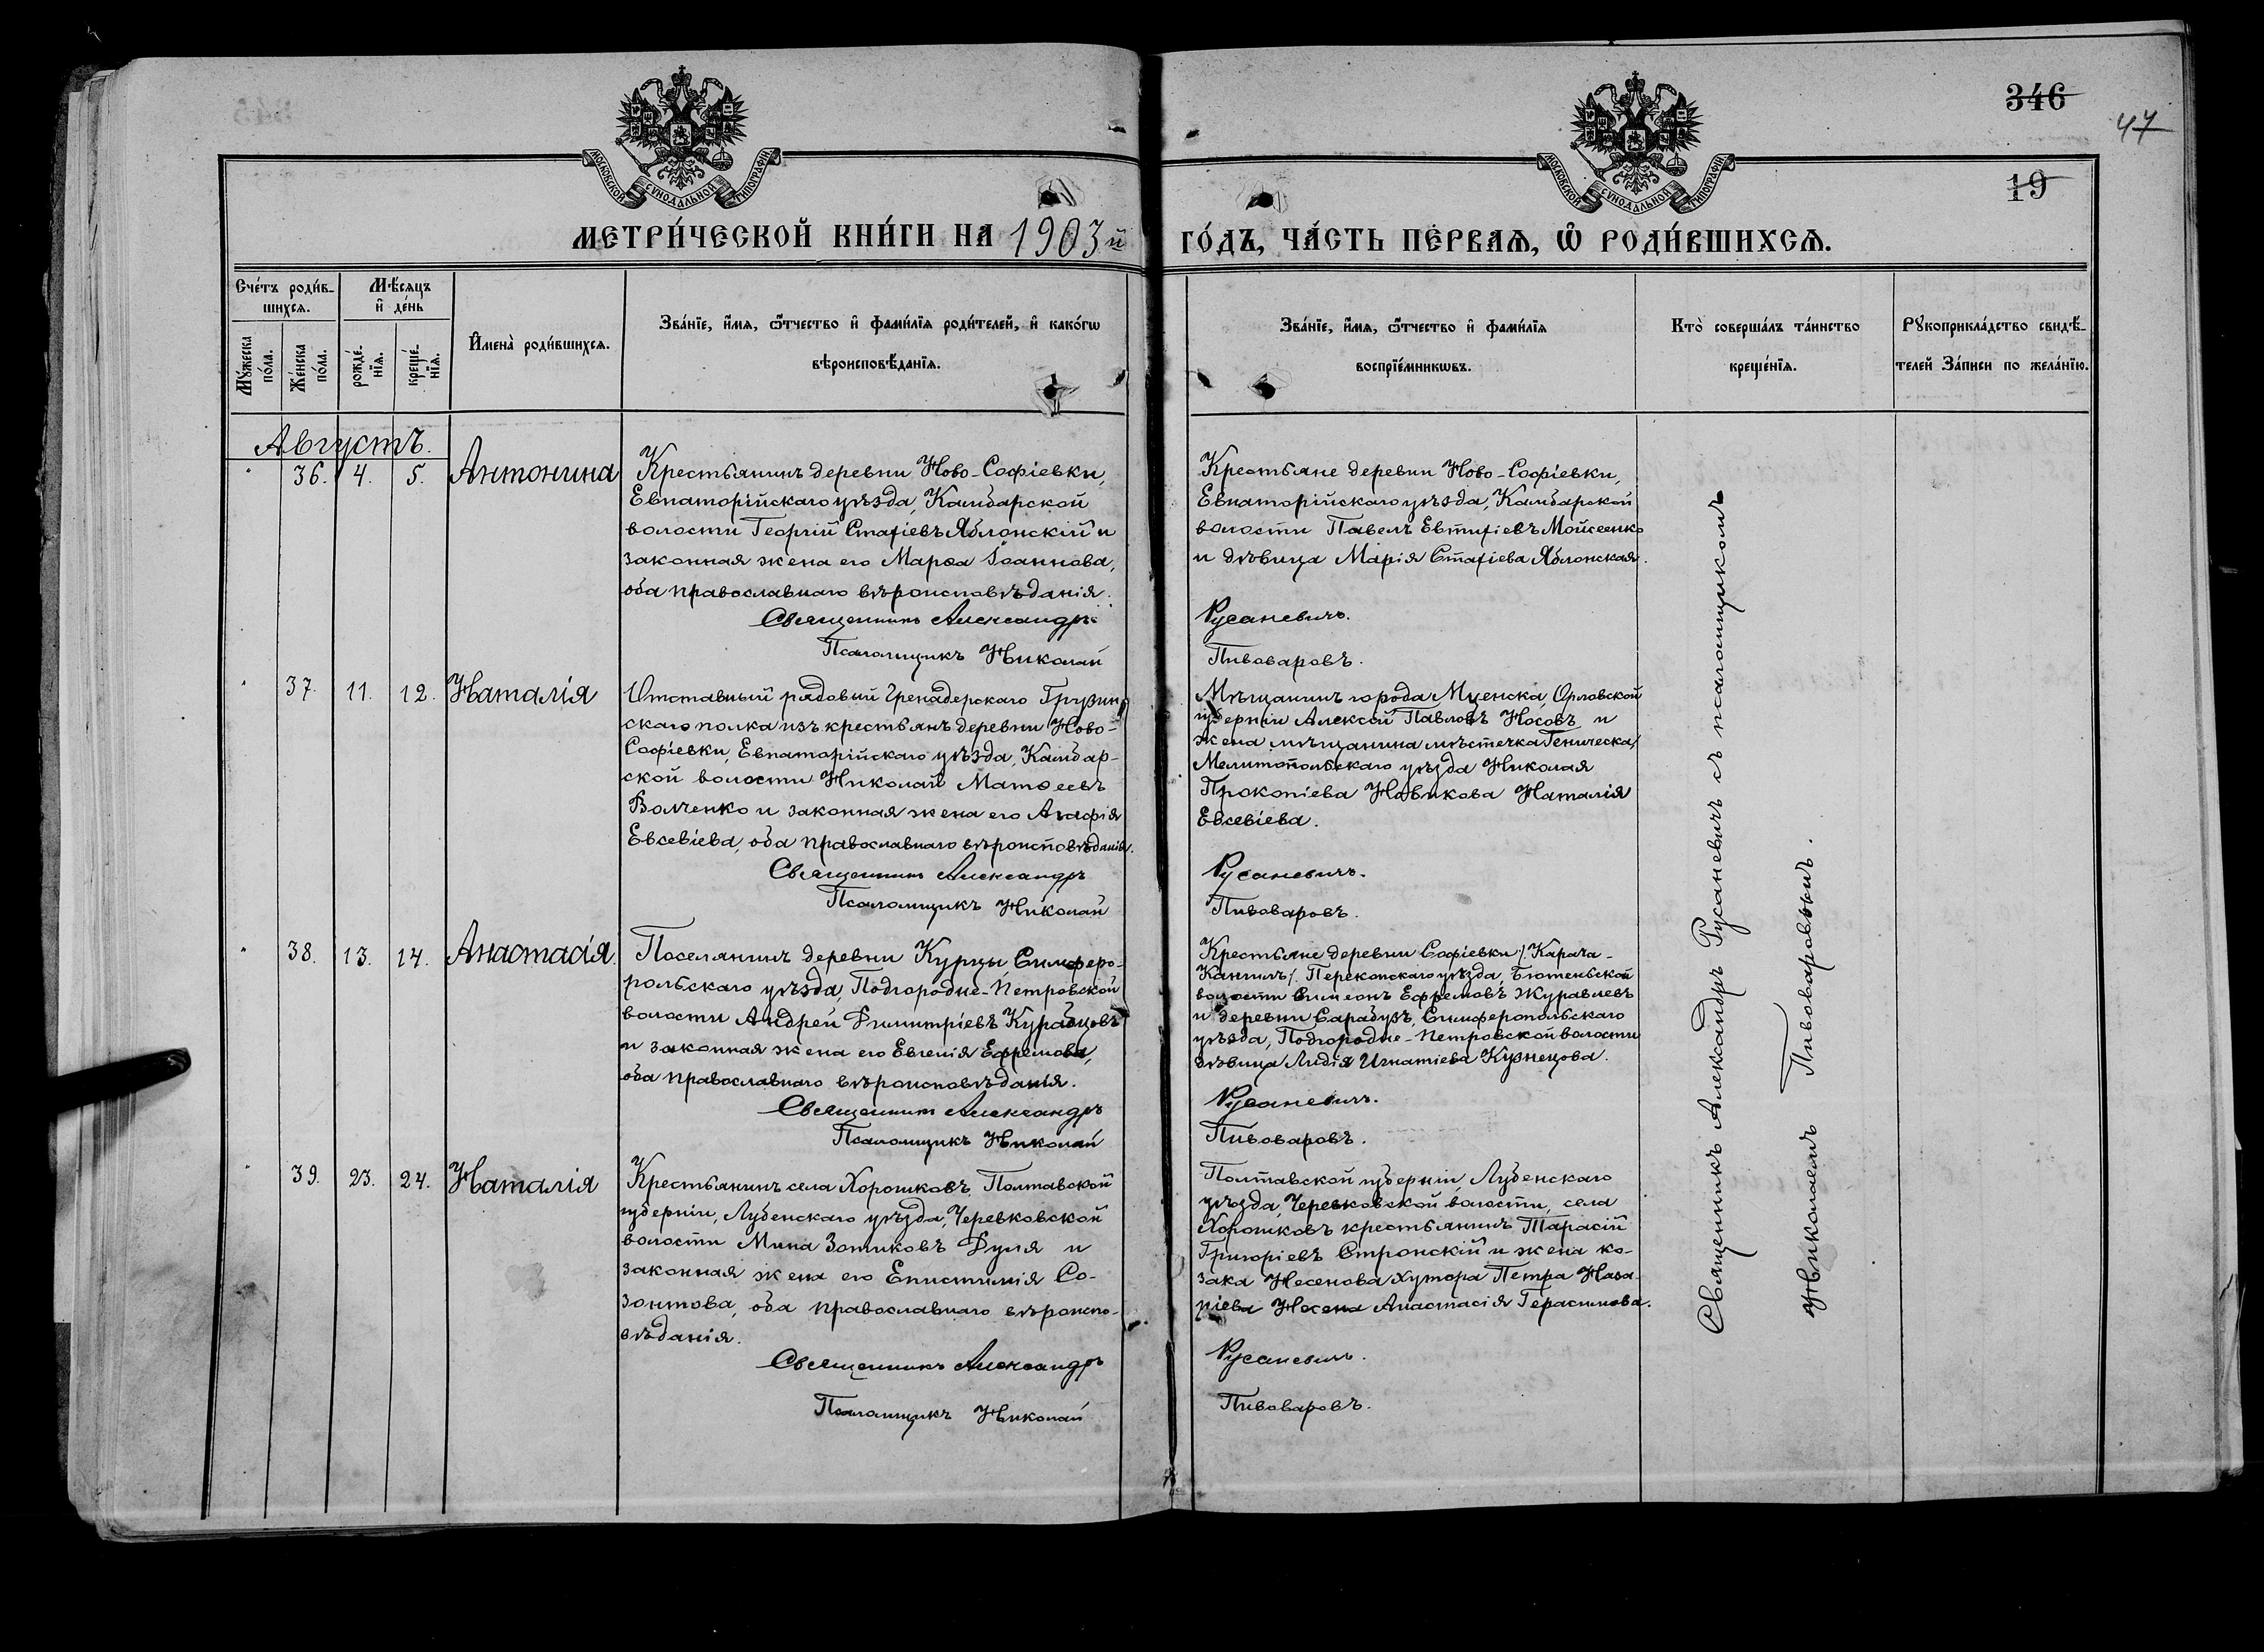 346
47
19
МОСКОВСКОЙ СѴНОДАЛЬНОЙ ТИПОГРАФІИ
МОСКОВСКОЙ СѴНОДАЛЬНОЙ ТИПОГРАФІИ
МЕТРИ́ЧЕСКОЙ КНИ́ГИ НА 1903й ГО́ДЪ, ЧА́СТЬ ПЕ́РВАѦ, Ѽ РОДИ́ВШИХСѦ.
Сче́тъ роди́в-
шихсѧ.
Мѣ́сѧцъ
и҆ де́нь
Мꙋ́жеска
по́ла.
Же́нска
по́ла.
рожде́-
нїѧ.
креще́-
нїѧ.
И҆мена̀ роди́вшихсѧ.
Зва́нїе, и҆́мѧ, ѻ҆́тчество и҆ фами́лїѧ роди́телей, и҆ како́гѡ
вѣроисповѣ́данїѧ.
Зва́нїе, и҆́мѧ, ѻ҆́тчество и҆ фами́лїѧ
воспрїе́мникѡвъ.
Кто̀ соверша́лъ та́инство
креще́нїѧ.
Рꙋкоприкла́дство свидѣ́-
телей За́писи по жела́нїю.
Августъ.
" 36. 4. 5. Антонина
Крестьянинъ деревни Ново-Софіевки,
Евпаторійскаго уѣзда, Камбарской
волости Георгій Стахіевъ Яблонскій и
законная жена его Марѳа Іоаннова,
оба православнаго вѣроисповѣданія.
Священникъ Александръ
Псаломщикъ Николай
Крестьяне деревни Ново-Софіевки,
Евпаторійскаго уѣзда, Камбарской
волости Павелъ Евтихіевъ Мойсеенко
и дѣвица Марія Стахіева Яблонская.
Русаневичъ.
Пивоваровъ.
" 37. 11. 12. Наталія
Отставный рядовый Гренадерскаго Грузин-
скаго полка изъ крестьянъ деревни Ново-
Софіевки, Евпаторійскаго уѣзда, Камбар-
ской волости Николай Матѳеевъ
Волченко и законная жена его Агафія
Евсевіева, оба православнаго вѣроисповѣданія.
Священникъ Александръ
Псаломщикъ Николай
Мѣщанинъ города Мценска, Орловской
губерніи Алексѣй Павловъ Носовъ и
жена мѣщанина мѣстечка Геническа,
Мелитопольскаго уѣзда Николая
Прокопіева Новикова Наталія
Евсевіева.
Русаневичъ.
Пивоваровъ.
" 38. 13. 14. Анастасія.
Поселянинъ деревни Курцы, Симферо-
польскаго уѣзда, Подгородне-Петровской
волости Андрей Димитріевъ Курабцовъ
и законная жена его Евгенія Ефремова,
оба православнаго вѣроисповѣданія.
Священникъ Александръ
Псаломщикъ Николай
Крестьяне деревни Софіевки /Карача-
Кангилъ/. Перекопскаго уѣзда, Бютеньской
волости Симеонъ Ефремовъ Журавлевъ
и деревни Сарабузъ, Симферопольскаго
уѣзда, Подгородне-Петровской волости
дѣвица Лидія Игнатіева Кузнецова.
Русаневичъ.
Пивоваровъ.
" 39. 23. 24. Наталія
Крестьянинъ села Хорошковъ, Полтавской
губерніи, Лубенскаго уѣзда, Черевковской
волости Мина Зотиковъ Дуля и
законная жена его Епистимія Со-
зонтова, оба православнаго вѣроиспо-
вѣданія.
Священникъ Александръ
Псаломщикъ Николай
Полтавской губерніи, Лубенскаго
уѣзда, Черевковской волости, села
Хорошковъ крестьянинъ Тарасій
Григоріевъ Стронскій и жена ко-
зака Несенова хутора Петра Наза-
ріева Несена Анастасія Герасимова.
Русаневичъ.
Пивоваровъ.
Священникъ Александръ Русаневичъ съ псаломщикомъ
Николаемъ Пивоваровымъ.